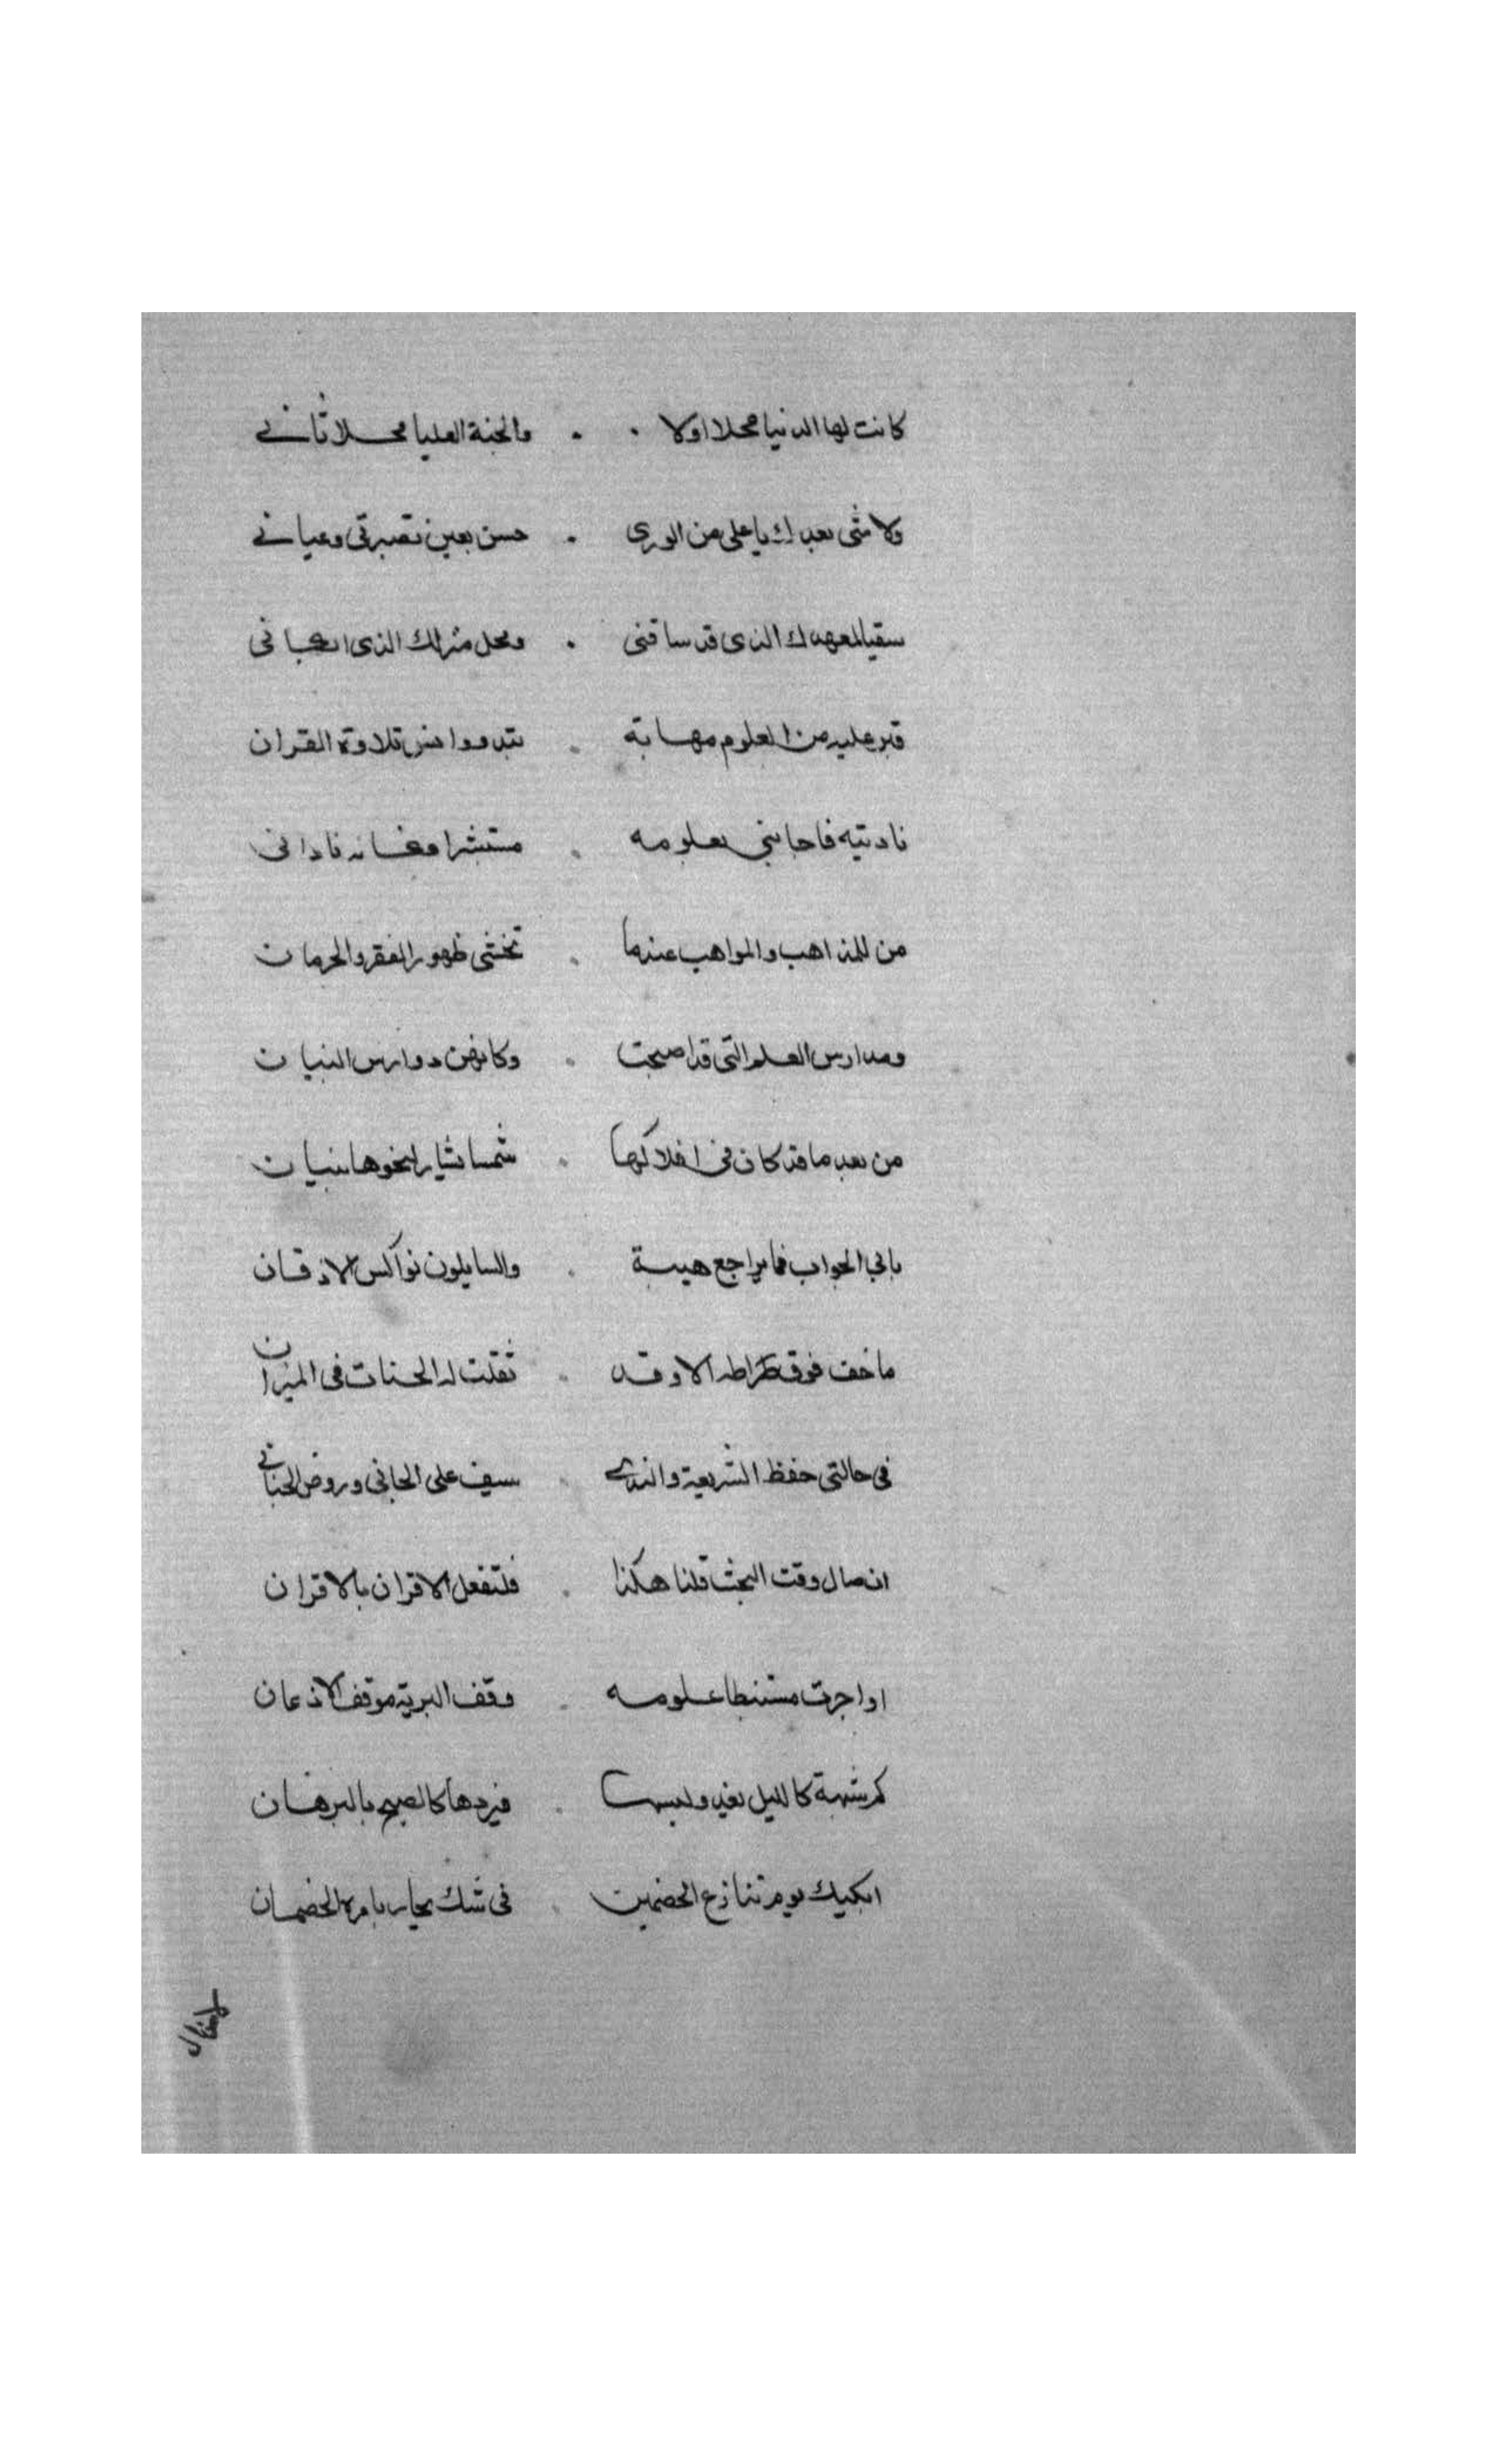 كانت لها الدنيا محلا اولا . . والجنة العليا محلا ثاني
ولا شى بعدك يا على من الورى . حسن بعين تصبرتى وعياني
سقيا لمعهدك الذى قد ساقنى . ومحل منزلك الذى
قبر عليه من العلوم مهابة . تلاوة القران
نادتيه فاجابنى بعلومه . مستبشرا
من للمذاهب والمواهب عندما . تخشى ظهور الفقر والحرمان
ومدارس العلم التى قد اصبحت . وكانهن دوارس البنيان
من بعد ما قد كان فى افلاكها . شمسا يشار لنحوها ببنان
يابى الجواب فما يراجع هيبة . والسايلون نواكس الاذقان
ما خف فوق الا وقد . ثقلت له الحسنات فى الميزان
فى حالتى حفظ الشريعة والندى . سيف على الجانى وروض الجانى
ان صال وقت البحث قلنا هكذا . فلتفعل الاقران بالاقران
اوا جرت مستنبطا علومه . وقف البرية موقف الاذعان
كم شبهة كالليل . فيردها كالصبح بالبرهان
ابكيك يوم تنازع الخصمين . فى شك يحار بامره الخصمان